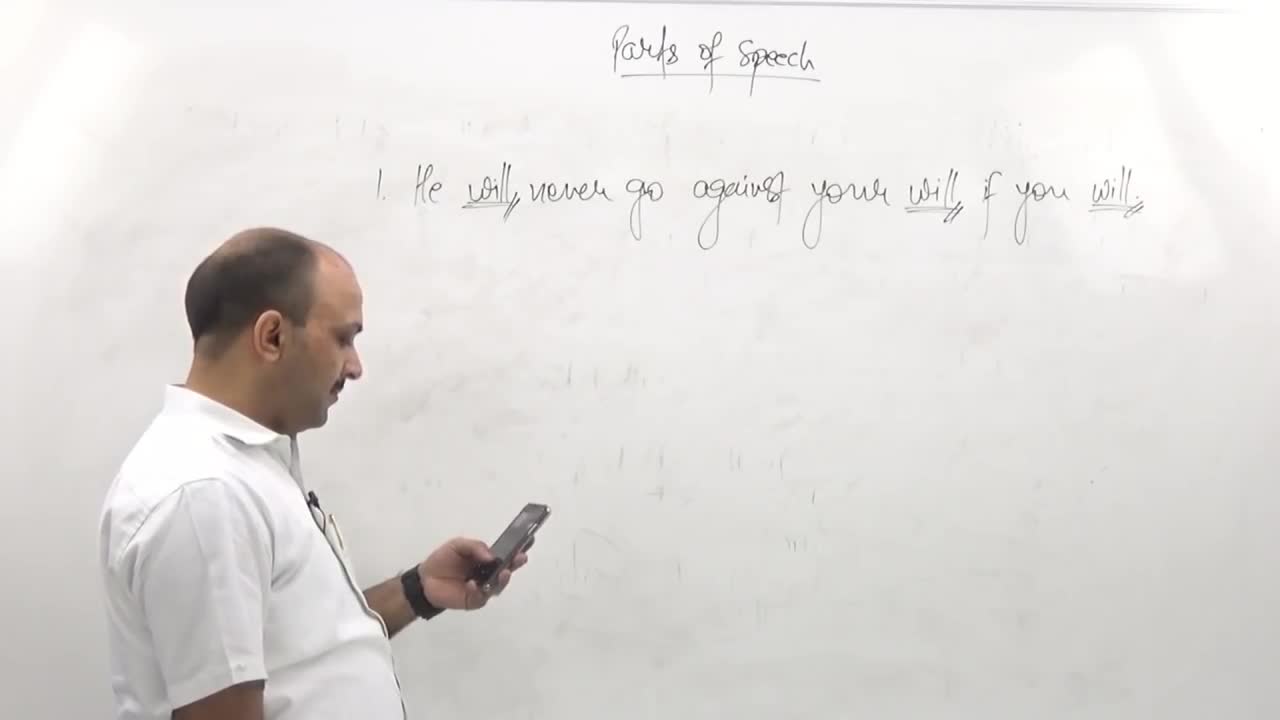 Parts of Speech
1. He will never go against your will if you will.